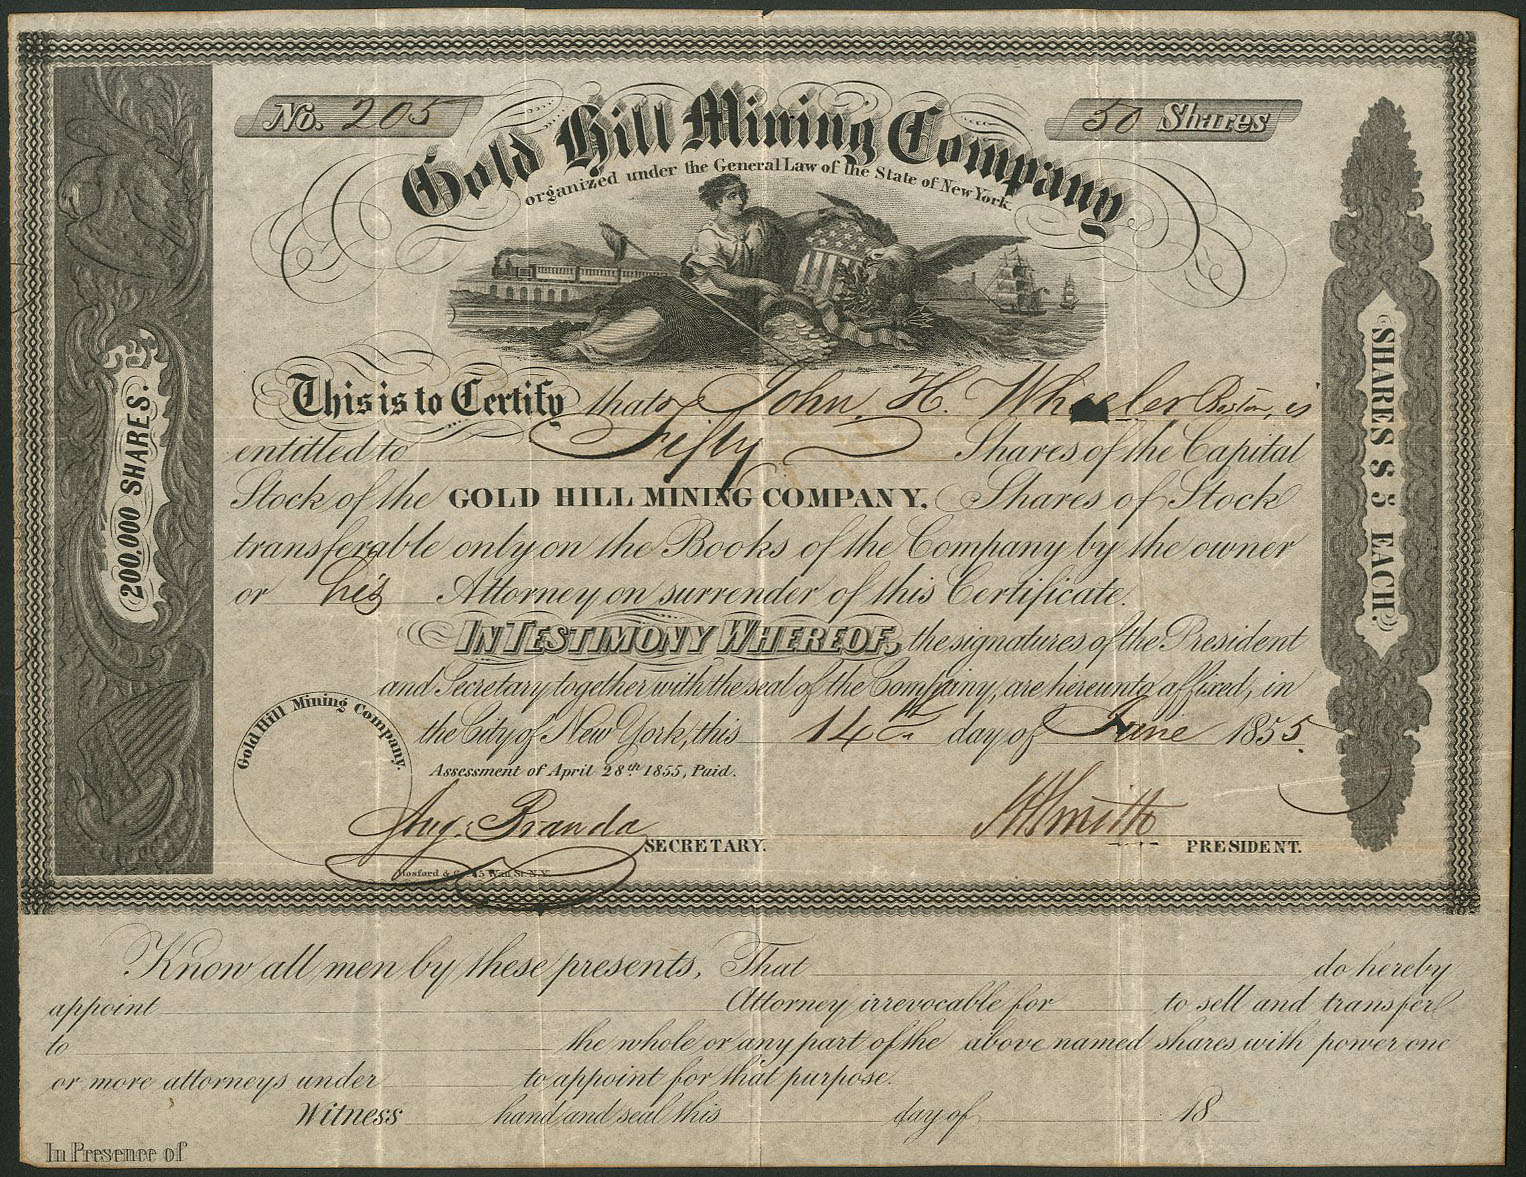 No. 205
50 Shares
Gold Hill Mining Company
organized under the General Law of the State of New York.
200,000 SHARES.
SHARES $5 EACH.
This is to Certify that John H. Wheeler Boston, is
entitled to Fifty Shares of the Capital
Stock of the GOLD HILL MINING COMPANY, Shares of Stock
transferable only on the Books of the Company by the owner
or his Attorney on surrender of this Certificate.
IN TESTIMONY WHEREOF, the signatures of the President
and Secretary together with the seal of the Company, are hereunto affixed, in
the City of New York, this 14th day of June 1855.
Gold Hill Mining Company.
Assessment of April 28th 1855, Paid.
Aug. Branda SECRETARY.
Smith PRESIDENT.
Hosford & Co. 45 Wall St. N.Y.
Know all men by these presents, That do hereby
appoint Attorney irrevocable for to sell and transfer
to the whole or any part of the above named shares with power one
or more attorneys under to appoint for that purpose.
Witness hand and seal this day of 18
In Presence of